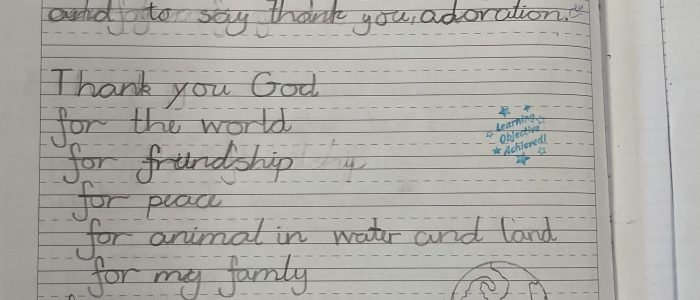 and to say thank you, adoration.
Thank you God
for the world
for friendship
for peace
for animal in water and land
for my famly
Learning
Objective
Achieved!